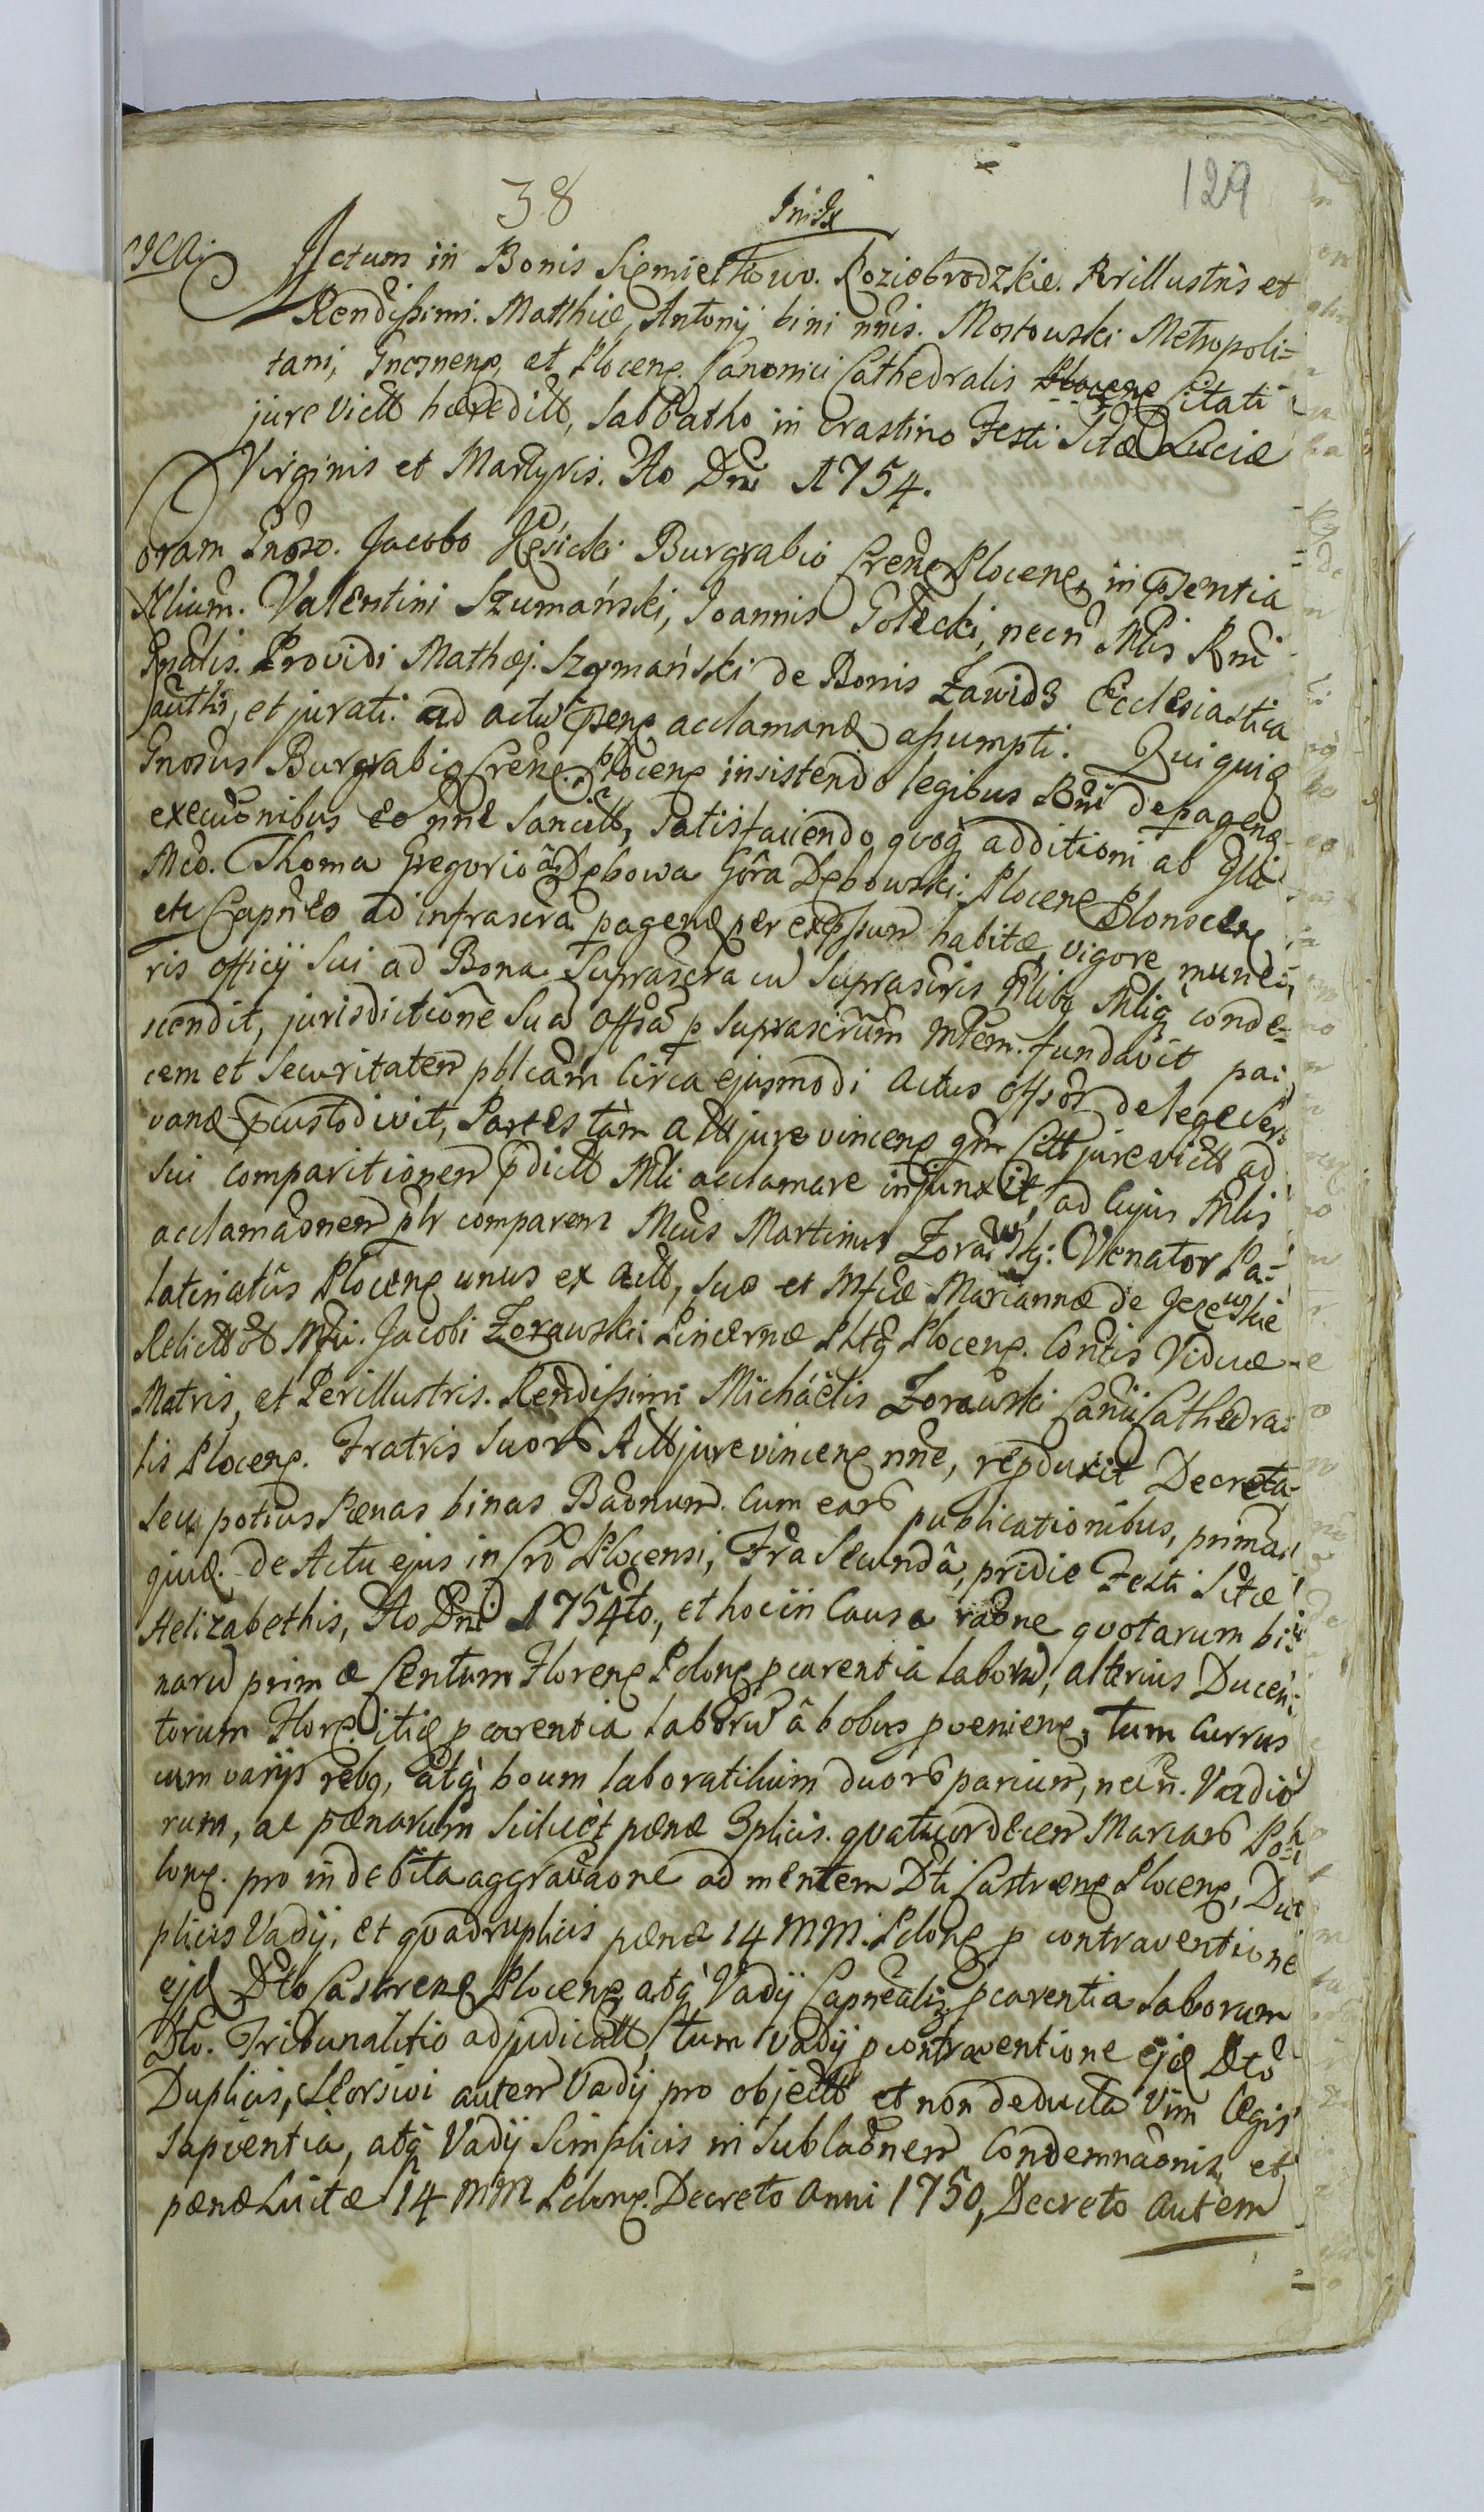 129
38
Actum in Bonis Siemietkowo. Koziebrodzkie. Prillustris et
Rendissimi. Matthiæ, Antonij bini nnis. Mostowski Metropoli-
tani, Gnesnens, et Plocens. Canonici Cathedralis Citati
jure victi hæredit, Sabbatho in Crastino Festi Sctæ Luciæ
Virginis et Martyris. Ao Dni 1754.
Coram Gnoso. Jacobo Burgrabio Crens Plocens, in Psentia
Nlium. Valentini Szumański, Joannis Gołecki, necn Mlis Rni
Gnalis. Providi Mathæj. Szymański de Bonis Zawidz Ecclesiastica
authi, et jurati. ad actũ Psens acclamand assumpti. Qui quid
Gnosus Burgrabig Crens. Plocens insistendo legibus Rni de pagens
execuõnibus eo nne Sancitt, Satisfaciendo quoq additioni ab Illi
Mco. Thoma Gregorio â Dębowa Góra Dębowski. Plocens Płonscens
etc Capneo ad infrascra pagend per expssum habitæ, vigore mune-
ris officij Sui ad Bona Suprascra cu Suprascris Nlibg Mliq conde-
scendit, jurisdictione Sua offsa p Suprascrum Mlem. fundavit pa-
cem et Securitatem pblicam circa ejusmodi actus offsos de lege Ser-
vand pcustodivit, Partes tàm Att jure vincens qm Citt jure victt ad
Sui comparitionem pdictt Mli acclamare injunxit, ad cujus Mlis
acclamaõnem plr comparens Mcus Martinus Zorawski: Venator Pa-
latinatûs Plocens unus ex Actt, suo et Mfcæ Mariannæ de Jezewskie
Relictt ôt Mfci. Jacobi Zorawski Pincernæ Pltg Plocens. Contis Viduæ
Matris, et Perillustris. Rendissimi Michaëlis Zorawski Canii Cathedra-
lis Plocens. Fratris Suorũ Actt jure vincens nne, repduxit Decreta
seu potius Pœnas binas Baõnum. Cum earũ publicationibus, prima
quid. de Actu ejus in Cro Plocensi, Fria Secundâ, pridie Festi Sctæ
Helizabethis, Ao Dni 1754to, et hoc in Causa raõne quotarum bi-
narũ primæ Centum Florens Polons p carentia laborũ, alterius Ducen-
torum Flors. itid p carentia laborũ â bobus pveniens, tum Currus
cum varijs rebg, atq boum laboratilium duorũ parium, necn. Vadio-
rum, ac pœnarum Scilicèt pœnæ 3plicis. quatuordecem Marcarũ Po-
lons. pro indebita aggravaõne ad mentem Dti Castrens Plocens, Du-
plicis Vadij, et quadruplicis pœnæ 14 MM. Polons p contraventione
ejd Dto Castrens Plocens, atq Vadij Capnealis p carentia laborum
Dto. Tribunalitio adjudicatt, tum Vadij p contraventione ejd Dto
Duplicis, Seorsivi autem Vadij pro objectt et non deducta vim legis
Sapientia, atq Vadij Simplicis in Sublaõnem Condemnaõnis, et
pœnæ Luitæ 14 MM Polons. Decreto Anni 1750, Decreto autem